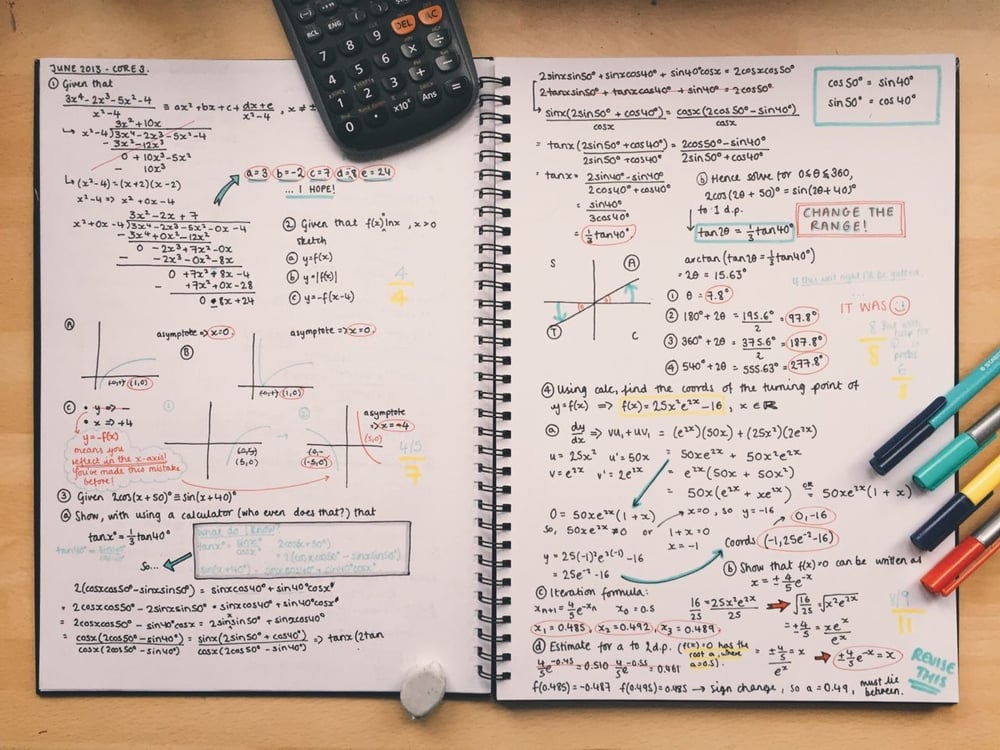 JUNE 2013 - CORE 3.
① Given that
3x⁴ - 2x³ - 5x² - 4 / x² - 4 ≡ ax² + bx + c + dx + e / x² - 4, x ≠ ±
3x² + 10x
↳ x² - 4 ) 3x⁴ - 2x³ - 5x² - 4
- 3x⁴ - 12x²
0 + 10x³ - 5x²
- 10x³
↳ (x² - 4) = (x + 2)(x - 2)
x² - 4 => x² + 0x - 4
a = 3 b = -2 c = 7 d = 8 e = 24
... I HOPE!
3x² - 2x + 7
x² + 0x - 4 ) 3x⁴ - 2x³ - 5x² - 0x - 4
- 3x⁴ + 0x³ - 12x²
0 - 2x³ + 7x² - 0x
- - 2x³ - 0x² - 8x
0 + 7x² + 8x - 4
- + 7x² + 0x - 28
0 8x + 24
② Given that f(x) = lnx, x > 0
sketch
ⓐ y = f(x)
ⓑ y = |f(x)|
ⓒ y = -f(x - 4)
4
4
Ⓐ
asymptote => x = 0.
(1,0)
Ⓑ
asymptote => x = 0.
(1,0)
Ⓒ • y => -
• x => +4
y = -f(x)
means you
reflect in the x-axis!
You've made this mistake
before!
①
(5,0)
②
asymptote
=> x = -4
(5,0)
4/5
7
③ Given 2cos(x + 50)° ≡ sin(x + 40)°
ⓐ Show, with using a calculator (who even does that?) that
tanx° = ⅓ tan40°
tan40° = sin40° / cos40°
So...
What do I know?
tanx° = sinx° / cosx° 2cos(x + 50°)
= 2(cosxcos50° - sinxsin50°)
sin(x + 40°) = sinxcos40° + sin40°cosx°
2(cosxcos50° - sinxsin50°) = sinxcos40° + sin40°cosx°
= 2cosxcos50° - 2sinxsin50° = sinxcos40° + sin40°cosx°
= 2cosxcos50° - sin40°cosx = 2sinxsin50° + sinxcos40°
= cosx(2cos50° - sin40°) / cosx(2cos50° - sin40°) = sinx(2sin50° + cos40°) / cosx(2cos50° - sin40°) => tanx(2tan
2sinxsin50° + sinxcos40° + sin40°cosx = 2cosxcos50°
2tanxsin50° + tanxcos40° + sin40° = 2cos50°
↳ sinx(2sin50° + cos40°) / cosx = cosx(2cos50° - sin40°) / cosx
cos50° = sin40°
sin50° = cos40°
= tanx(2sin50° + cos40°) / 2sin50° + cos40° = 2cos50° - sin40° / 2sin50° + cos40°
tanx° = 2sin40° - sin40° / 2cos40° + cos40°
= sin40° / 3cos40°
= ⅓ tan40°
ⓑ Hence solve for 0 ≤ θ ≤ 360,
2cos(2θ + 50°) = sin(2θ + 40°)
to 1 d.p.
tan2θ = ⅓ tan40°
CHANGE THE
RANGE!
S Ⓐ
Ⓣ C
arctan(tan2θ = ⅓ tan40°)
= 2θ = 15.63°
If this isn't right I'll be gutted.
IT WAS
① θ = 7.8°
② 180° + 2θ = 195.6° / 2 = 97.8°
③ 360° + 2θ = 375.6° / 2 = 187.8°
④ 540° + 2θ = 555.63° = 277.8°
8
8
6
④ Using calc, find the coords of the turning point of
y = f(x) => f(x) = 25x²e²ˣ - 16, x ∈ ℝ
ⓐ dy/dx => vu₁ + uv₁ = (e²ˣ)(50x) + (25x²)(2e²ˣ)
u = 25x² u' = 50x = 50xe²ˣ + 50x²e²ˣ
v = e²ˣ v' = 2e²ˣ = e²ˣ(50x + 50x²)
= 50x(e²ˣ + xe²ˣ) OR = 50xe²ˣ(1 + x)
0 = 50xe²ˣ(1 + x) x = 0, so y = -16 0, -16
So, 50xe²ˣ ≠ 0 or 1 + x = 0
x = -1
Coords (-1, 25e⁻² - 16)
y = 25(-1)²e²⁽⁻¹⁾ - 16
= 25e⁻² - 16
ⓑ Show that f(x) = 0 can be written as
x = ± ⅘e⁻ˣ
16/25 = 25x²e²ˣ / 25 √16/25 = √x²e²ˣ
= ± 4/5 = xeˣ / eˣ
= ± ⅘ / eˣ = x ± ⅘e⁻ˣ = x
8/9
11
ⓒ Iteration formula:
xₙ₊₁ = ⅘e⁻ˣₙ x₀ = 0.5
x₁ = 0.485, x₂ = 0.492, x₃ = 0.489.
ⓓ Estimate for a to 2 d.p. (f(x) = 0 has the
root a, where
a = 0.5).
⅘e⁻⁰·⁴⁵ = 0.510 ⅘e⁻⁰·⁵⁵ = 0.461
f(0.485) = -0.487 f(0.495) = 0.485 → sign change, so a = 0.49, must lie
between.
REVISE
THIS
RCL ENG ( ) M+
7 8 9 DEL AC
4 5 6 × ÷
1 2 3 + -
0 . ×10ˣ Ans =